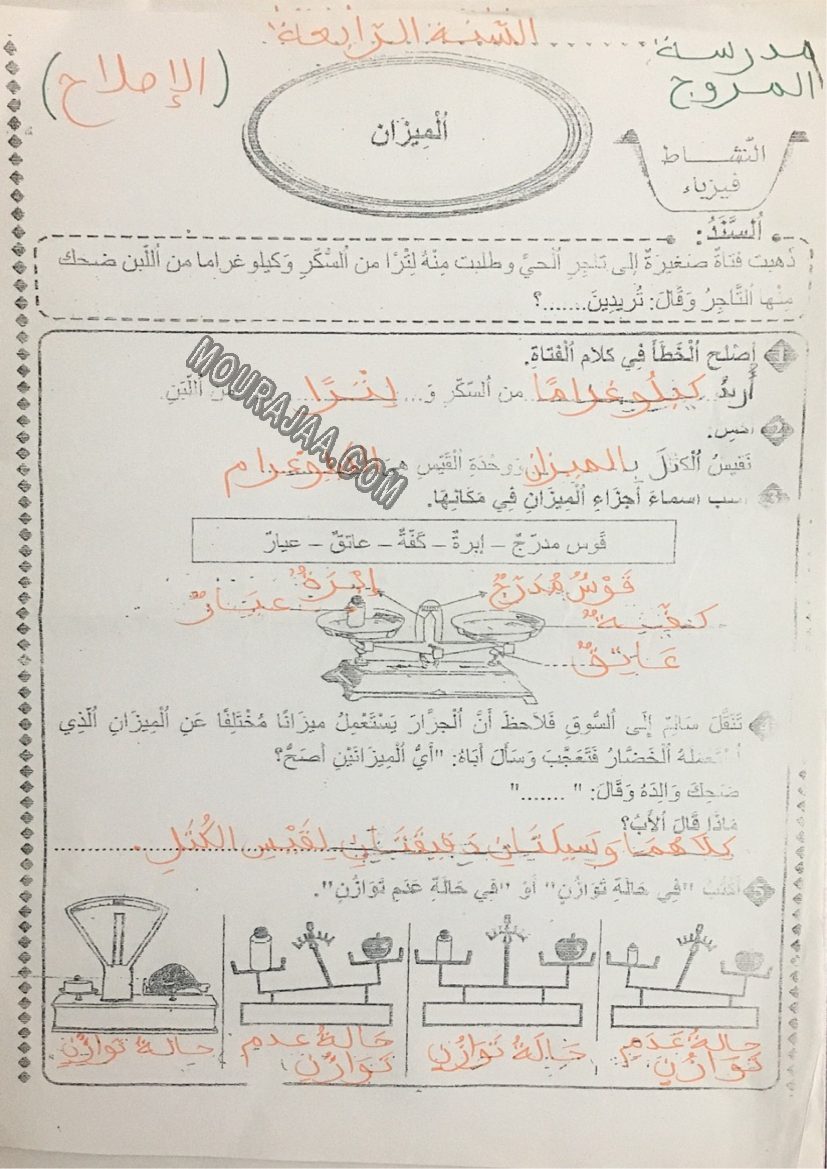 السّنة الرّابعة
مدرسة
المروج
(الإصلاح)
اَلْمِيزَان
النّشاط
فيزياء
اَلسَّنَدُ:
ذَهبت فتاةٌ صغيرَةٌ إلى تاجِرِ اَلْحيِّ وطلبت مِنْهُ لِتْرًا من اَلسُّكّرِ وَكيلوغراما من اَللّبن ضحك
مِنْها اَلتَّاجِرُ وَقَالَ: تُريدِينَ.......؟
1 إِصْلح اَلْخَطَأَ فِي كلام اَلْفتاةِ.
أُريدُ كِيلُوغرامًا من اَلسّكّر وَ... لِتْرًا من اَللّبَنِ.
2
نَقيسُ اَلْكُتَلَ بِالميزان وَوحْدَةُ اَلْقَيْسِ هي الكيلوغرام
3 أسماءَ أجزاءِ اَلْميزَانِ فِي مَكَانِهَا.
قَوْس مدرّجٌ – إبرةٌ – كفّةٌ – عاتقٌ – عيارٌ
قَوْسٌ مُدَرَّجٌ
إبْرَةٌ
عيَارٌ
كفّةٌ
عَاتِقٌ
4 تَنَقَّلَ سَالِمٌ إِلَى اَلسُّوقِ فَلاحظَ أَنَّ اَلْجزَّارَ يَسْتَعْمِلُ ميزَانًا مُخْتَلِفًا عَنِ اَلْمِيزَانِ اَلَّذِي
اِسْتَعْمَلَهُ اَلْخَضَّارُ فَتَعَجَّبَ وَسَأَلَ أَبَاهُ: "أَيُّ اَلْمِيزَانَيْنِ أَصَحُّ؟
ضَحِكَ وَالِدَهُ وَقَالَ: " ....... "
مَاذَا قَالَ اَلأَبُ؟
كِلاَهُمَا وَسِيلَتَانِ دَقِيقَتَانِ لِقَيْسِ الكُتَلِ.
5 أَكْتُبُ "فِي حَالَةِ تَوَازُنٍ" أَوْ "فِي حَالَةِ عَدَمِ تَوَازُنٍ".
حالةُ عَدَمِ
تَوَازُنٍ
حَالَةُ تَوَازُنٍ
حَالةُ عدمِ
تَوَازُنٍ
حالةُ تَوَازُنٍ
MOURAJAA.COM